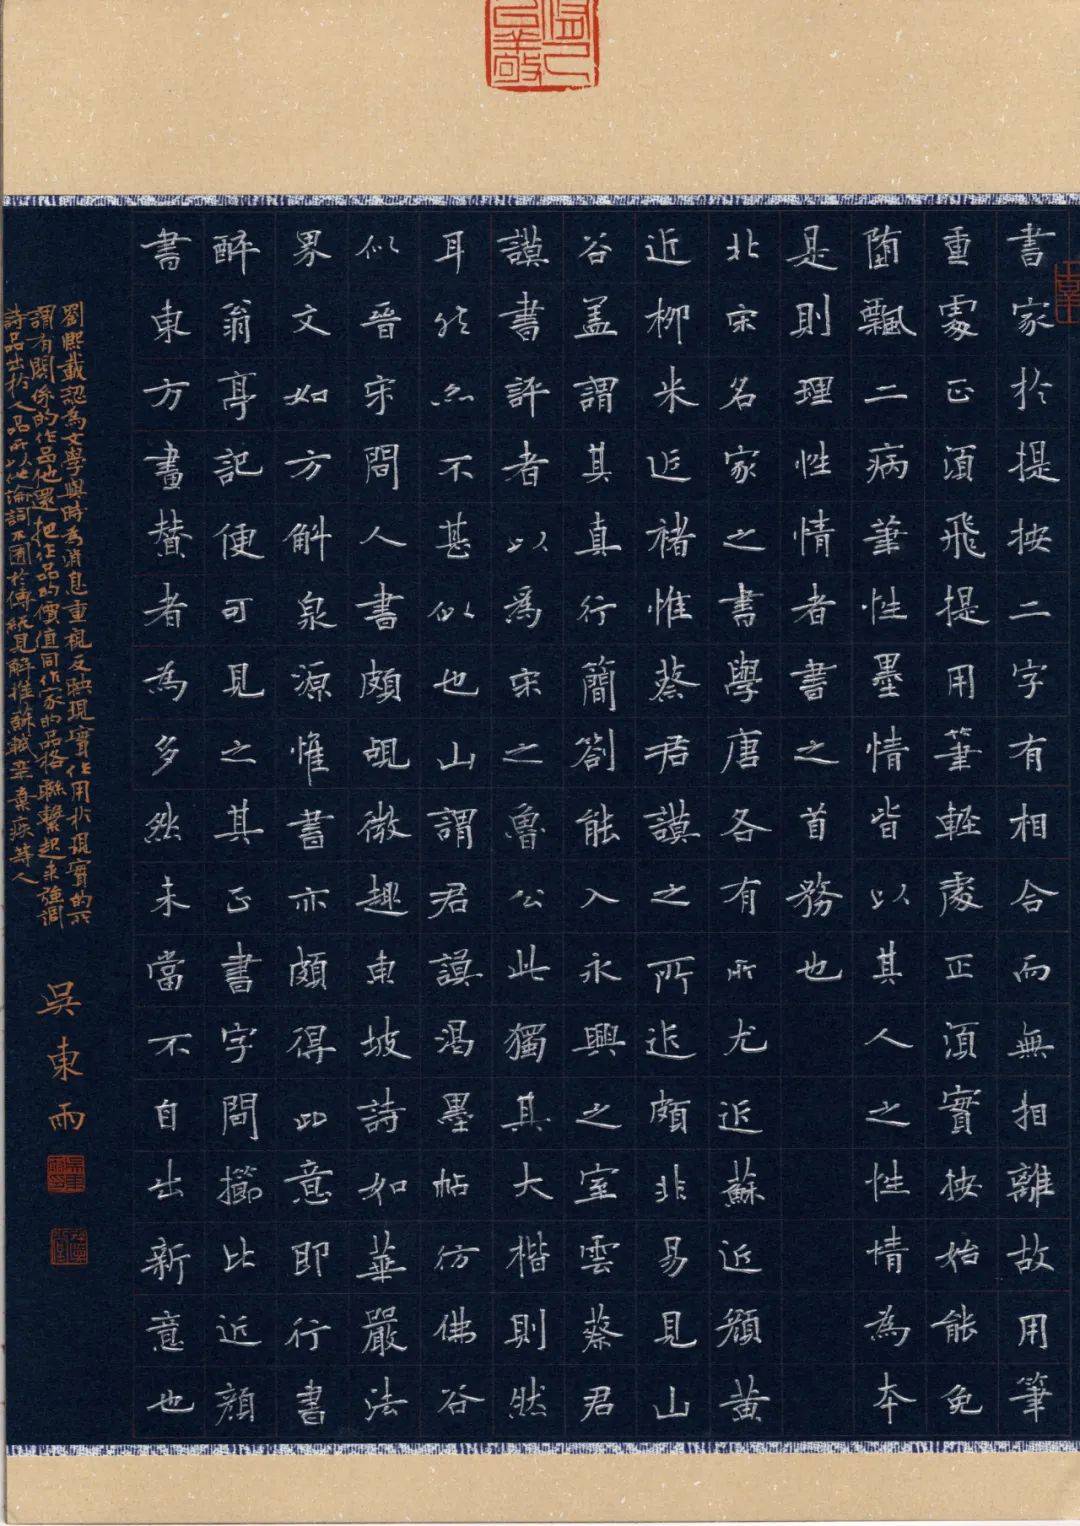 書家於提按二字有相合而無相離故用筆
重處正須飛提用筆輕處正須實按始能免
墮飄二病筆性墨情皆以其人之性情為本
是則理性情者書之首務也
北宋名家之書學唐各有所尤近蘇近顏黃
近柳米近褚惟蔡君謨之所近頗非易見山
谷蓋謂其真行簡劄能入永興之室雲蔡君
謨書評者以爲宋之魯公此獨其大楷則然
耳然亦不甚似也山謂君謨渴墨帖彷佛谷
似晉宋間人書頗覘微趣東坡詩如華嚴法
界文如方斛泉源惟書亦頗得此意即行書
醉翁亭記便可見之其正書字間擳比近顏
書東方畫贊者為多然未當不自出新意也
劉熙載認為文學與時為消息重視反映現實作用於現實的所
謂有關係的作品他還把作品的價值同作家的品格聯繫起來強調
詩品出於人品所以他論詞不囿於傳統見解推蘇軾辛棄疾等人
吳東雨